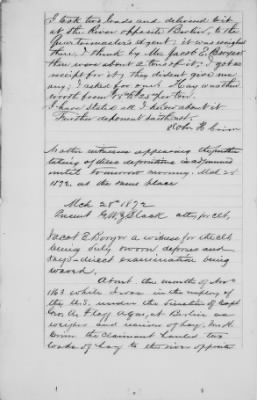 I took two loads and delivered it
at the River opposite Berlin, to the
Quartermasters Agent; it was weighed
there, I think by Mr. Jacob E. Boryer
there was about a ton of it; I got no
receipt for it; they didnt give me
any; I asked for one. Hay was then
worth from 15 to 25 per ton.
I have stated all I know about it
Further deponent saith not.
John H.
No other witness appearing the further
taking of these depositions is adjourned
until to morrow morning, Mch 28
1872, at the same place
Mch 28th 1872
Present G.W.Z. Black atty for clt,
Jacob E. Boryer a witness for the clt
being duly sworn deposes and
says - direct examination being
waived.
About the month of Novr
1863 while I was in the employ of
the U.S. under the direction of Capt
Geo. A Flagg Aqm, at Berlin as
weigher and receiver of hay, Mr.
the claimant hauled two
loads of hay to the river opposite